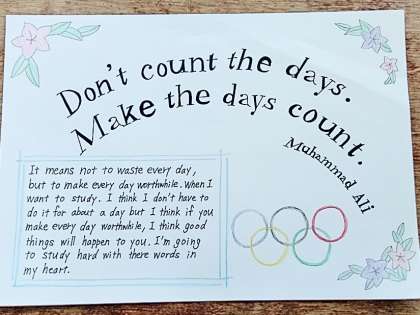 Don't count the days.
Make the days count.
Muhammad Ali
It means not to waste every day,
but to make every day worthwhile. When I
want to study. I think I don't have to
do it for about a day but I think if you
make every day worthwhile, I think good
things will happen to you. I'm going
to study hard with there words in
my heart.